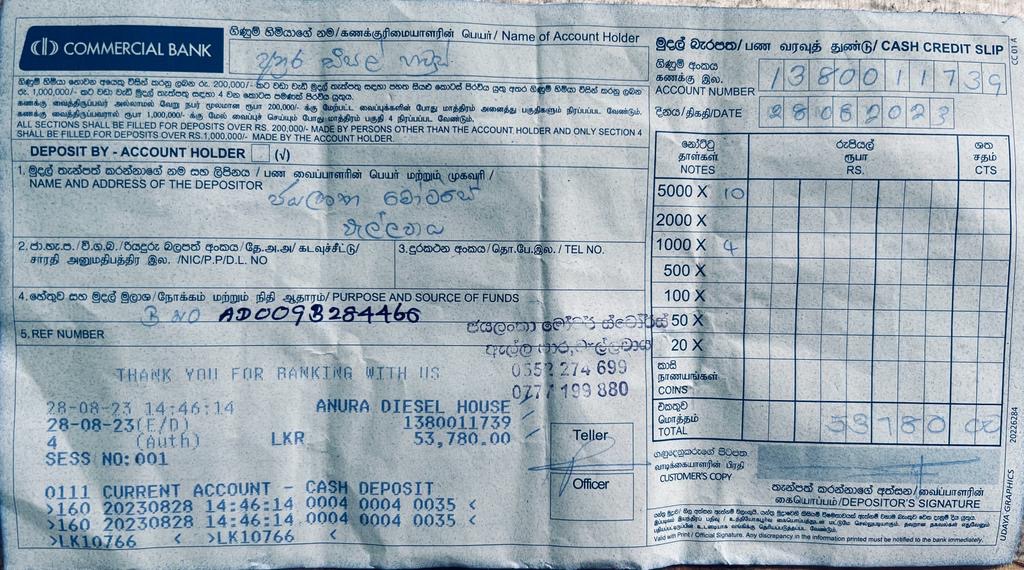 COMMERCIAL BANK
ගිණුම් හිමියාගේ නම/கணக்குரிமையாளரின் பெயர்/ Name of Account Holder
ALL SECTIONS SHALL BE FILLED FOR DEPOSITS OVER RS. 200,000/- MADE BY PERSONS OTHER THAN THE ACCOUNT HOLDER AND ONLY SECTION 4
SHALL BE FILLED FOR DEPOSITS OVER RS.1,000,000/- MADE BY THE ACCOUNT HOLDER.
DEPOSIT BY - ACCOUNT HOLDER (√)
1. මුදල් තැන්පත් කරන්නාගේ නම සහ ලිපිනය / பண வைப்பாளரின் பெயர் மற்றும் முகவரி /
NAME AND ADDRESS OF THE DEPOSITOR
ජයලංකා මෝටර්ස්
වැල්ලවාය
2. ජා.හැ.ප. / වි.ග.බ./රියදුරු බලපත් අංකය/தே.அ.அ/ கடவுச்சீட்டு/
சாரதி அனுமதிபத்திர இல. /NIC/P.P/D.L. NO
3.දුරකථන අංකය/தொ.பே.இல. / TEL NO.
4.හේතුව සහ මුදල් මූලාශ්‍ර/நோக்கம் மற்றும் நிதி ஆதாரம்/ PURPOSE AND SOURCE OF FUNDS
B NO AD009B284466
5. REF NUMBER
0552 274 699
0777 199 880
THANK YOU FOR BANKING WITH US
28-08-23 14:46:14 ANURA DIESEL HOUSE
28-08-23(E/D) 1380011739
4 (Auth) LKR 53,780.00
SESS NO: 001
0111 CURRENT ACCOUNT - CASH DEPOSIT
>160 20230828 14:46:14 0004 0004 0035 <
>160 20230828 14:46:14 0004 0004 0035 <
>LK10766 < >LK10766 <
Teller
Officer
මුදල් බැරපත/ பண வரவுத் துண்டு/ CASH CREDIT SLIP
CC 01 A
ගිණුම් අංකය
கணக்கு இல.
ACCOUNT NUMBER 1380011739
දිනය/திகதி/DATE 28082023
නෝට්ටු
தாள்கள்
NOTES
රුපියල්
ரூபா
RS.
ශත
சதம்
CTS
5000 X 10
2000 X
1000 X 4
500 X
100 X
50 X
20 X
කාසි
நாணயங்கள்
COINS
එකතුව
மொத்தம்
TOTAL 53780 00
ගනුදෙනුකරුගේ පිටපත
வாடிக்கையாளரின் பிரதி
CUSTOMER'S COPY
තැන්පත් කරන්නාගේ අත්සන/வைப்பாளரின்
கையொப்பம்/DEPOSITOR'S SIGNATURE
Valid with Print / Official Signature. Any discrepancy in the information printed must be notified to the bank immediately.
UDAYA GRAPHICS 20226284